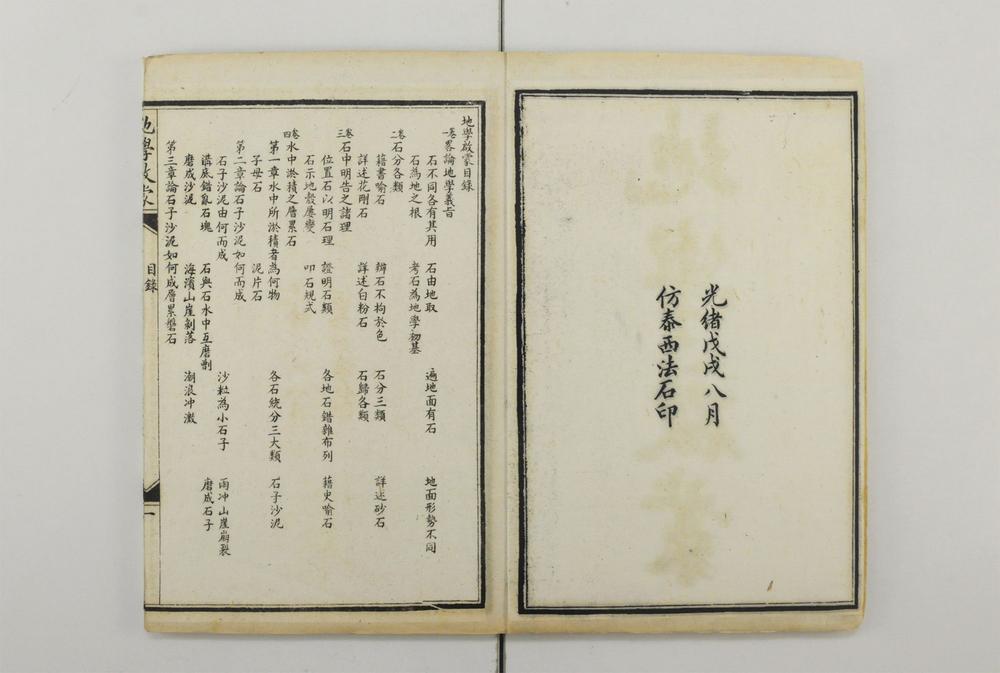 光緒戊戌八月
仿泰西法石印
地學啟蒙目錄
卷一 畧論地學義旨
石不同各有其用 石由地取 遍地面有石 地面形勢不同
石為地之根 考石為地學初基
卷二 石分各類
藉書喻石 辨石不拘於色 石分三類 詳述砂石
詳述花剛石 詳述白粉石 石歸各類
卷三 石中明告之諸理
位置石以明石理 證明石類 各地石錯雜布列 藉史喻石
石示地殼屢變 叩石規式
卷四 水中淤積之層累石
第一章水中所淤積者為何物 各石統分三大類 石子沙泥
子母石 泥片石
第二章論石子沙泥如何而成
石子沙泥由何而成 沙粒為小石子 雨冲山崖崩裂
溝底錯亂石塊 石與石水中互磨劘 磨成石子
磨成沙泥 海濱山崖剝落 潮浪冲激
第三章論石子沙泥如何成層累磐石
地學啟蒙
目錄
一